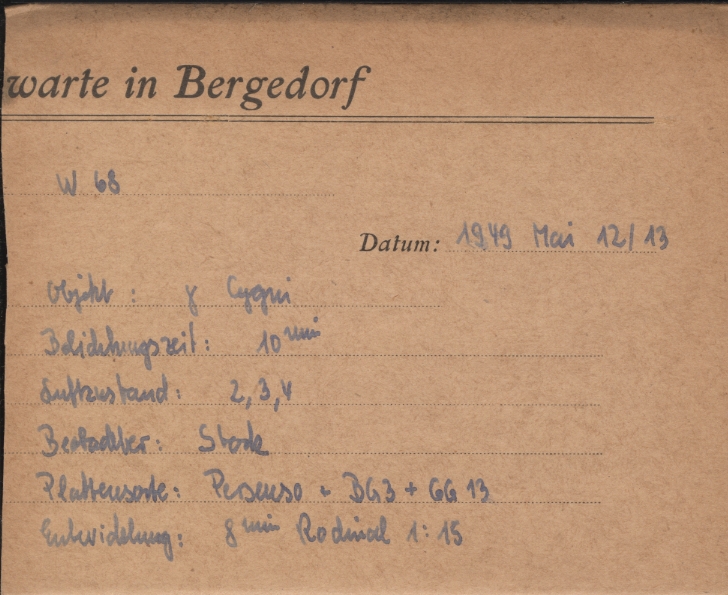 warte in Bergedorf
W 68
Datum: 1949 Mai 12/13
Objekt: γ Cygni
Belichtungszeit: 10 min
Luftzustand: 2, 3, 4
Beobachter: Stock
Plattensorte: Persenso + BG3 + GG 13
Entwicklung: 8 min Rodinal 1:15